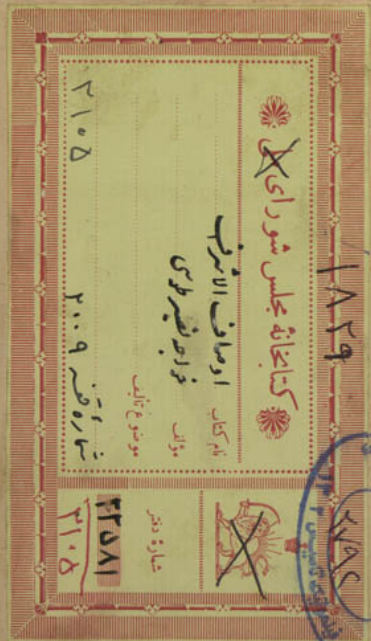 ۱۸۲۹
کتابخانهٔ مجلس شورای ملی
نام کتاب اوصاف الاشراف
مؤلف خواجه نصیر طوسی
موضوع تألیف
شماره قفسه ۲۰۰۹
۲۱۰۵
شمارهٔ دفتر
۲۲۵۸۱
۳۱۰۵